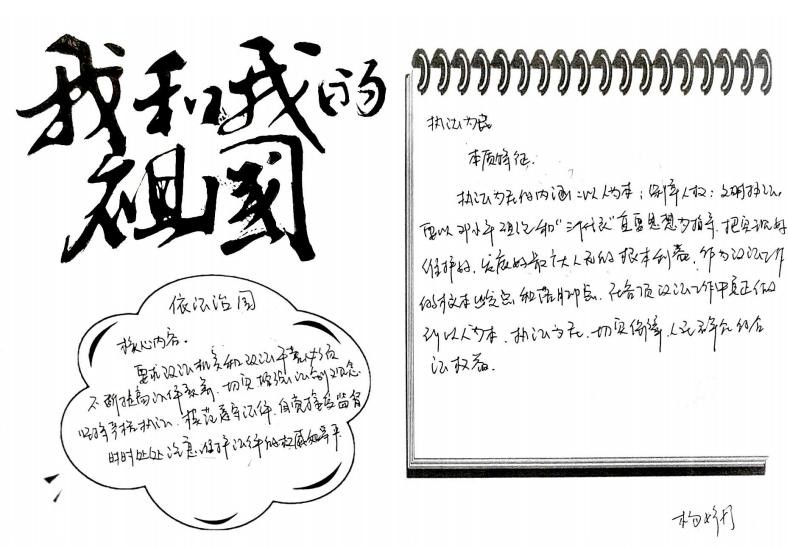 我和我的
祖国
依法治国
核心内容。
要求政法机关和政法干警必须
不断提高法律素养，切实增强法制观念，
坚持严格执法，模范遵守法律，自觉接受监督
时时处处注意维护法律的权威和尊严
执法为民
本质特征.
执法为民的内涵：以人为本；保障人权；文明执法。
要以邓小平理论和"三个代表"重要思想为指导，把实现好
维护好、发展好最广大人民的根本利益，作为政法工作
的根本出发点和落脚点，在各项政法工作中真正做
到以人为本、执法为民，切实保障人民群众的合
法权益。